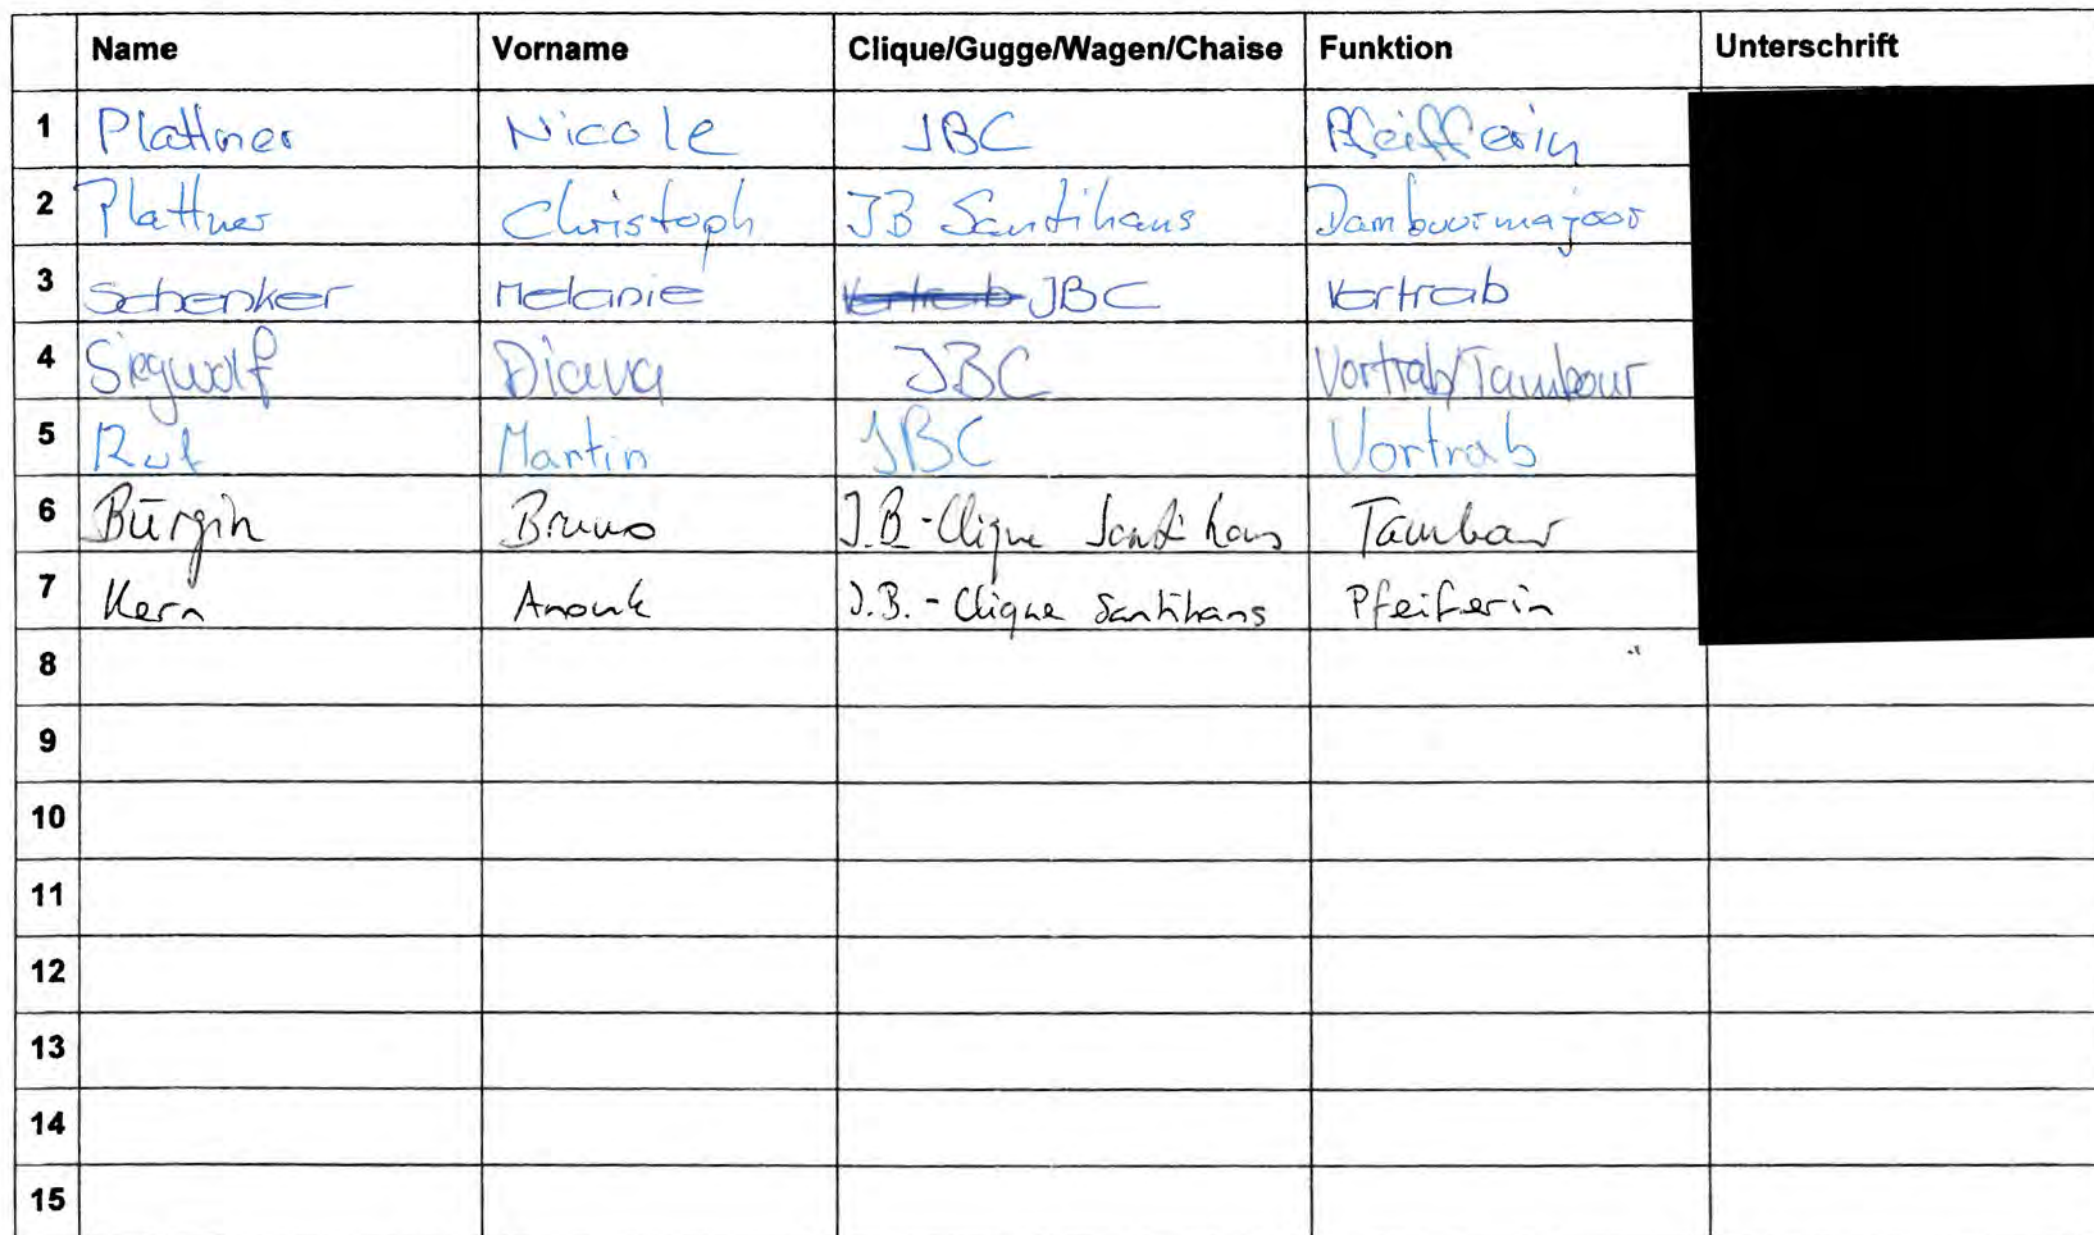 Name Vorname Clique/Gugge/Wagen/Chaise Funktion Unterschrift
1 Plattner Nicole JBC Pfeifferin
2 Plattner Christoph JB Santihans Dambuurmajoor
3 Schenker Melanie Vortrab JBC Vortrab
4 Siegwolf Diana JBC Vortrab/Tambour
5 Ruf Martin JBC Vortrab
6 Bürgin Bruno J.B-Clique Santihans Tambour
7 Kern Anouk J.B.-Clique Santihans Pfeiferin
8
9
10
11
12
13
14
15